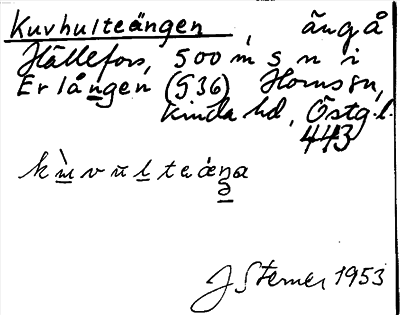 Kuvhulteängen, äng å
Hällefors, 500 m s n i
Erlången (536) Hornssn,
Kinda hd, Östg.l.
443
J Sterner 1953